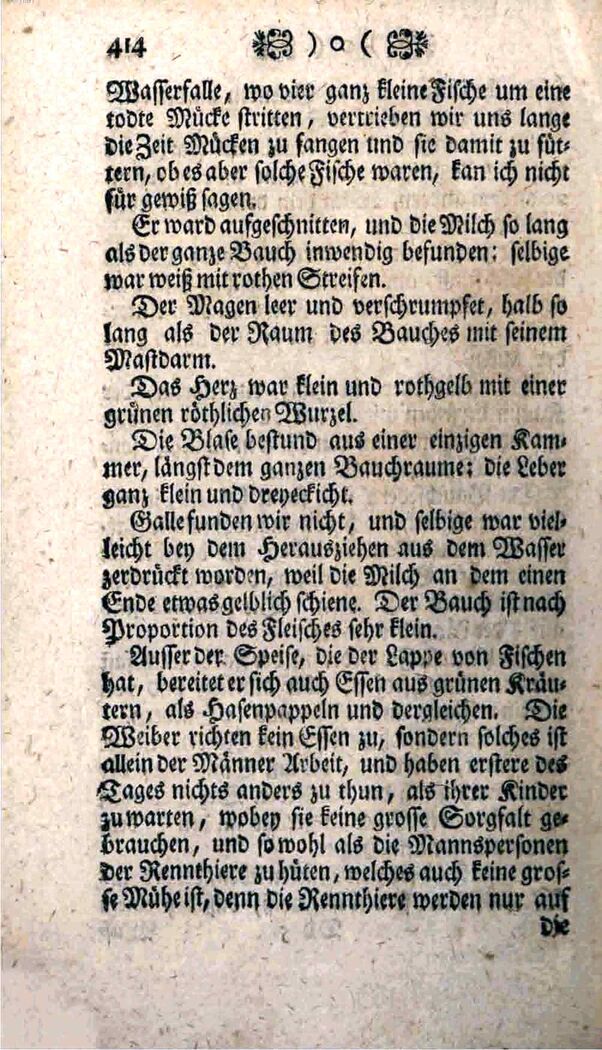 414 ) o (
Wasserfalle, wo vier ganz kleine Fische um eine
todte Mücke stritten, vertrieben wir uns lange
die Zeit Mücken zu fangen und sie damit zu füt-
tern, ob es aber solche Fische waren, kan ich nicht
für gewiß sagen.
Er ward aufgeschnitten, und die Milch so lang
als der ganze Bauch inwendig befunden: selbige
war weiß mit rothen Streifen.
Der Magen leer und verschrumpfet, halb so
lang als der Raum des Bauches mit seinem
Mastdarm.
Das Herz war klein und rothgelb mit einer
grünen röthlichen Wurzel.
Die Blase bestund aus einer einzigen Kam-
mer, längst dem ganzen Bauchraume: die Leber
ganz klein und dreyeckicht.
Galle funden wir nicht, und selbige war viel-
leicht bey dem Herausziehen aus dem Wasser
zerdrückt worden, weil die Milch an dem einen
Ende etwas gelblich schiene. Der Bauch ist nach
Proportion des Fleisches sehr klein.
Ausser der Speise, die der Lappe von Fischen
hat, bereitet er sich auch Essen aus grünen Kräu-
tern, als Hasenpappeln und dergleichen. Die
Weiber richten kein Essen zu, sondern solches ist
allein der Männer Arbeit, und haben erstere des
Tages nichts anders zu thun, als ihrer Kinder
zu warten, wobey sie keine grosse Sorgfalt ge-
brauchen, und sowohl als die Mannspersonen
der Rennthiere zu hüten, welches auch keine gros-
se Mühe ist, denn die Rennthiere werden nur auf
die